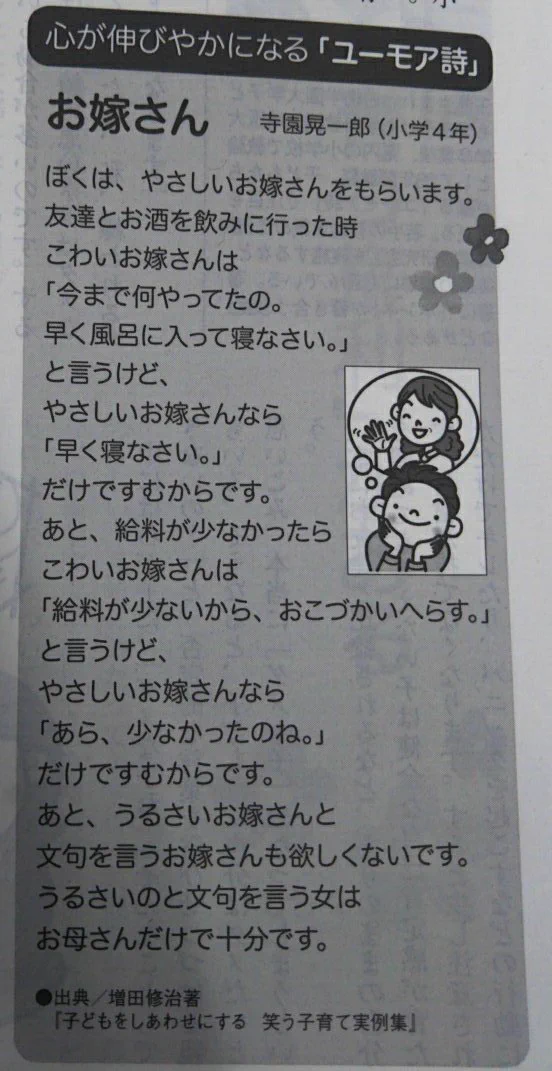 心が伸びやかになる「ユーモア詩」
お嫁さん 寺園晃一郎（小学４年）
ぼくは、やさしいお嫁さんをもらいます。
友達とお酒を飲みに行った時
こわいお嫁さんは
「今まで何やってたの。
早く風呂に入って寝なさい。」
と言うけど、
やさしいお嫁さんなら
「早く寝なさい。」
だけですむからです。
あと、給料が少なかったら
こわいお嫁さんは
「給料が少ないから、おこづかいへらす。」
と言うけど、
やさしいお嫁さんなら
「あら、少なかったのね。」
だけですむからです。
あと、うるさいお嫁さんと
文句を言うお嫁さんも欲しくないです。
うるさいのと文句を言う女は
お母さんだけで十分です。
●出典／増田修治著
『子どもをしあわせにする　笑う子育て実例集』